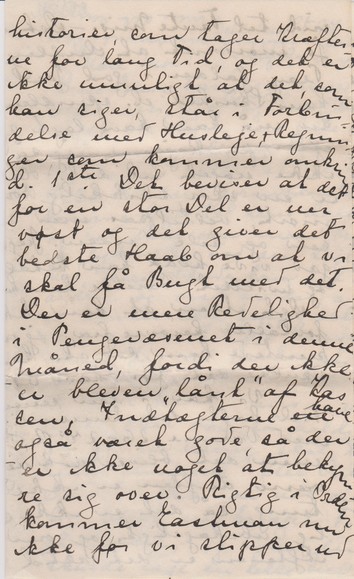 historier, som tager Kræfter-
ne for lang Tid, og det er
ikke umuligt at det, som
han siger, står i Forbin-
delse med Husleje, Regnin-
ger som kommer omkring
d. 1ste. Det beviser at det
for en stor Del er ner-
vøst og det giver det
bedste Haab om at vi
skal få Bugt med det.
Der er mere Redelighed
i Pengevæsenet i denne
Måned, fordi der ikke
er bleven "lånt" af Kas-
sen, Indtægterne have
også været gode, så der
er ikke noget at bekym-
re sig over. Rigtig i Orden
kommer Eastman nu
ikke før vi slipper ud